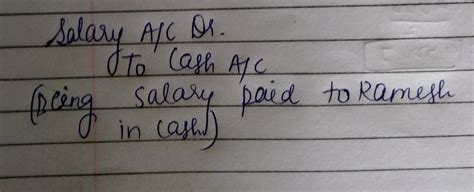 Salary A/C Dr.
To Cash A/C
(Being Salary paid to Ramesh
in Cash)